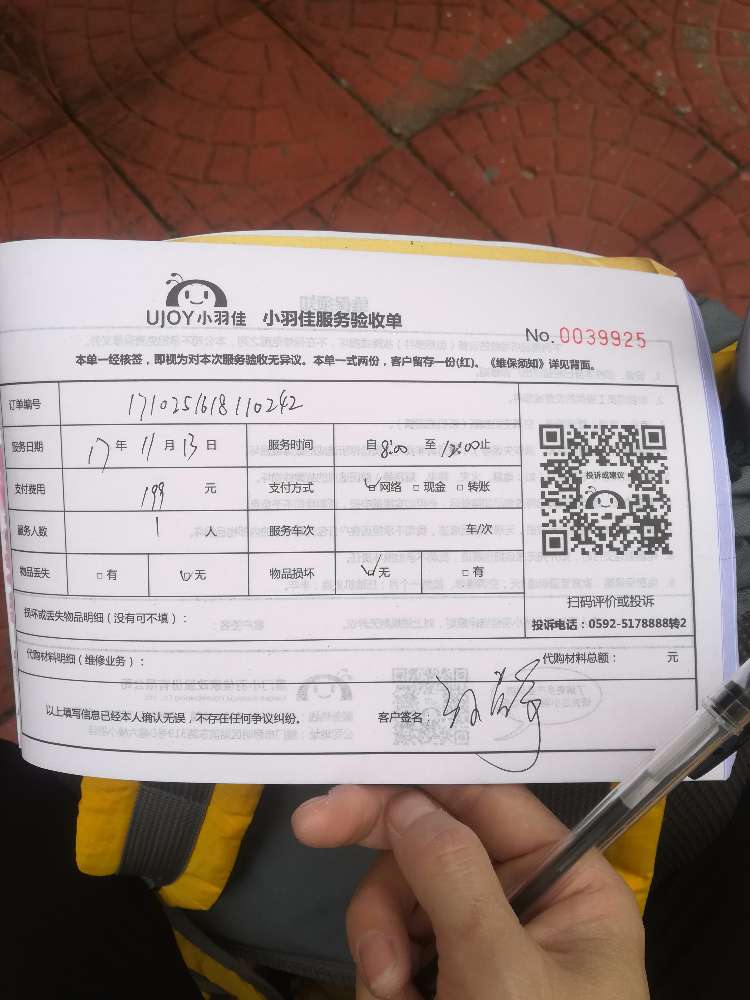 UJOY小羽佳 小羽佳服务验收单
No. 0039925
本单一经核签，即视为对本次服务验收无异议。本单一式两份，客户留存一份(红)。《维保须知》详见背面。
订单编号 1710251618110242
服务日期 17 年 11 月 13 日 服务时间 自 8:00 至 12:00 止
支付费用 199 元 支付方式 网络 现金 转账
服务人数 1 人 服务车次 车/次
物品丢失 有 无 物品损坏 无 有
投诉或建议
扫码评价或投诉
投诉电话：0592-5178888转2
损坏或丢失物品明细（没有可不填）：
代购材料明细（维修业务）： 代购材料总额： 元
以上填写信息已经本人确认无误，不存在任何争议纠纷。 客户签名：